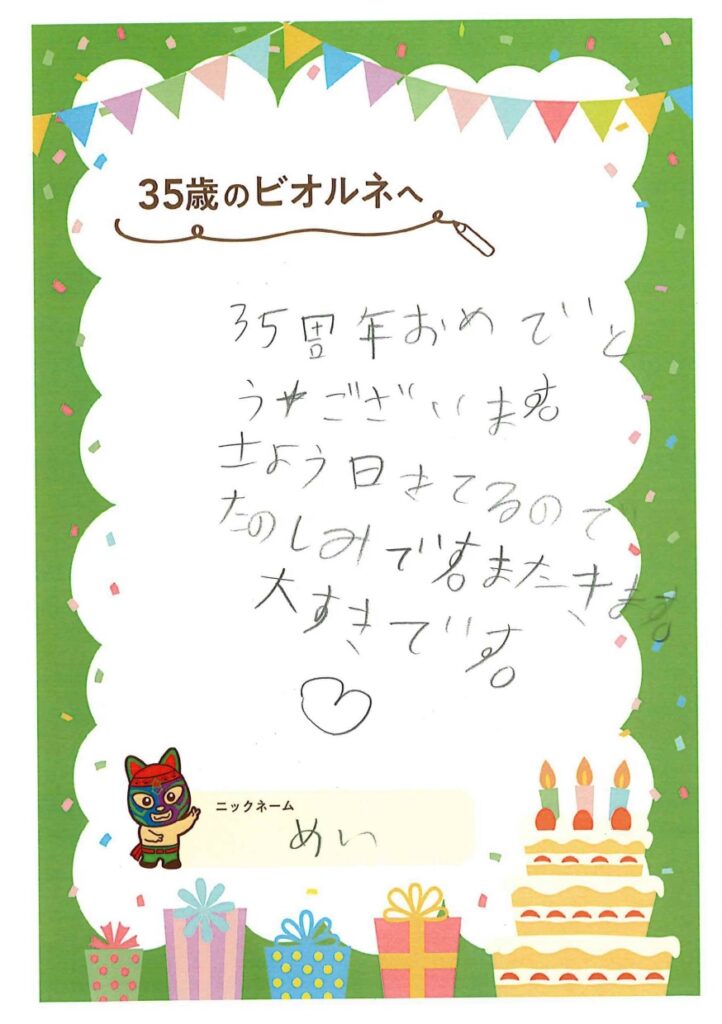 35歳のビオルネへ
35周年おめでと
うございます。
きよう日きてるので
たのしみです。またきます。
大すきです。
ニックネーム
めい